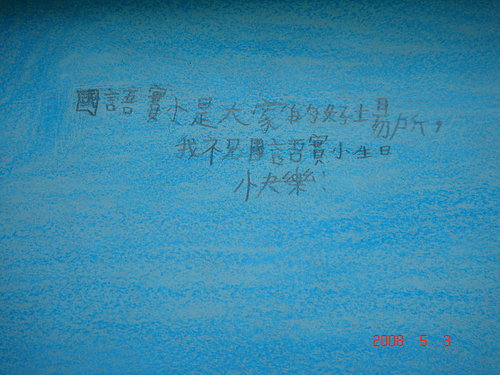 國語實小是大家的好場所，
我祝國語實小生日
快樂！
2008 5 3